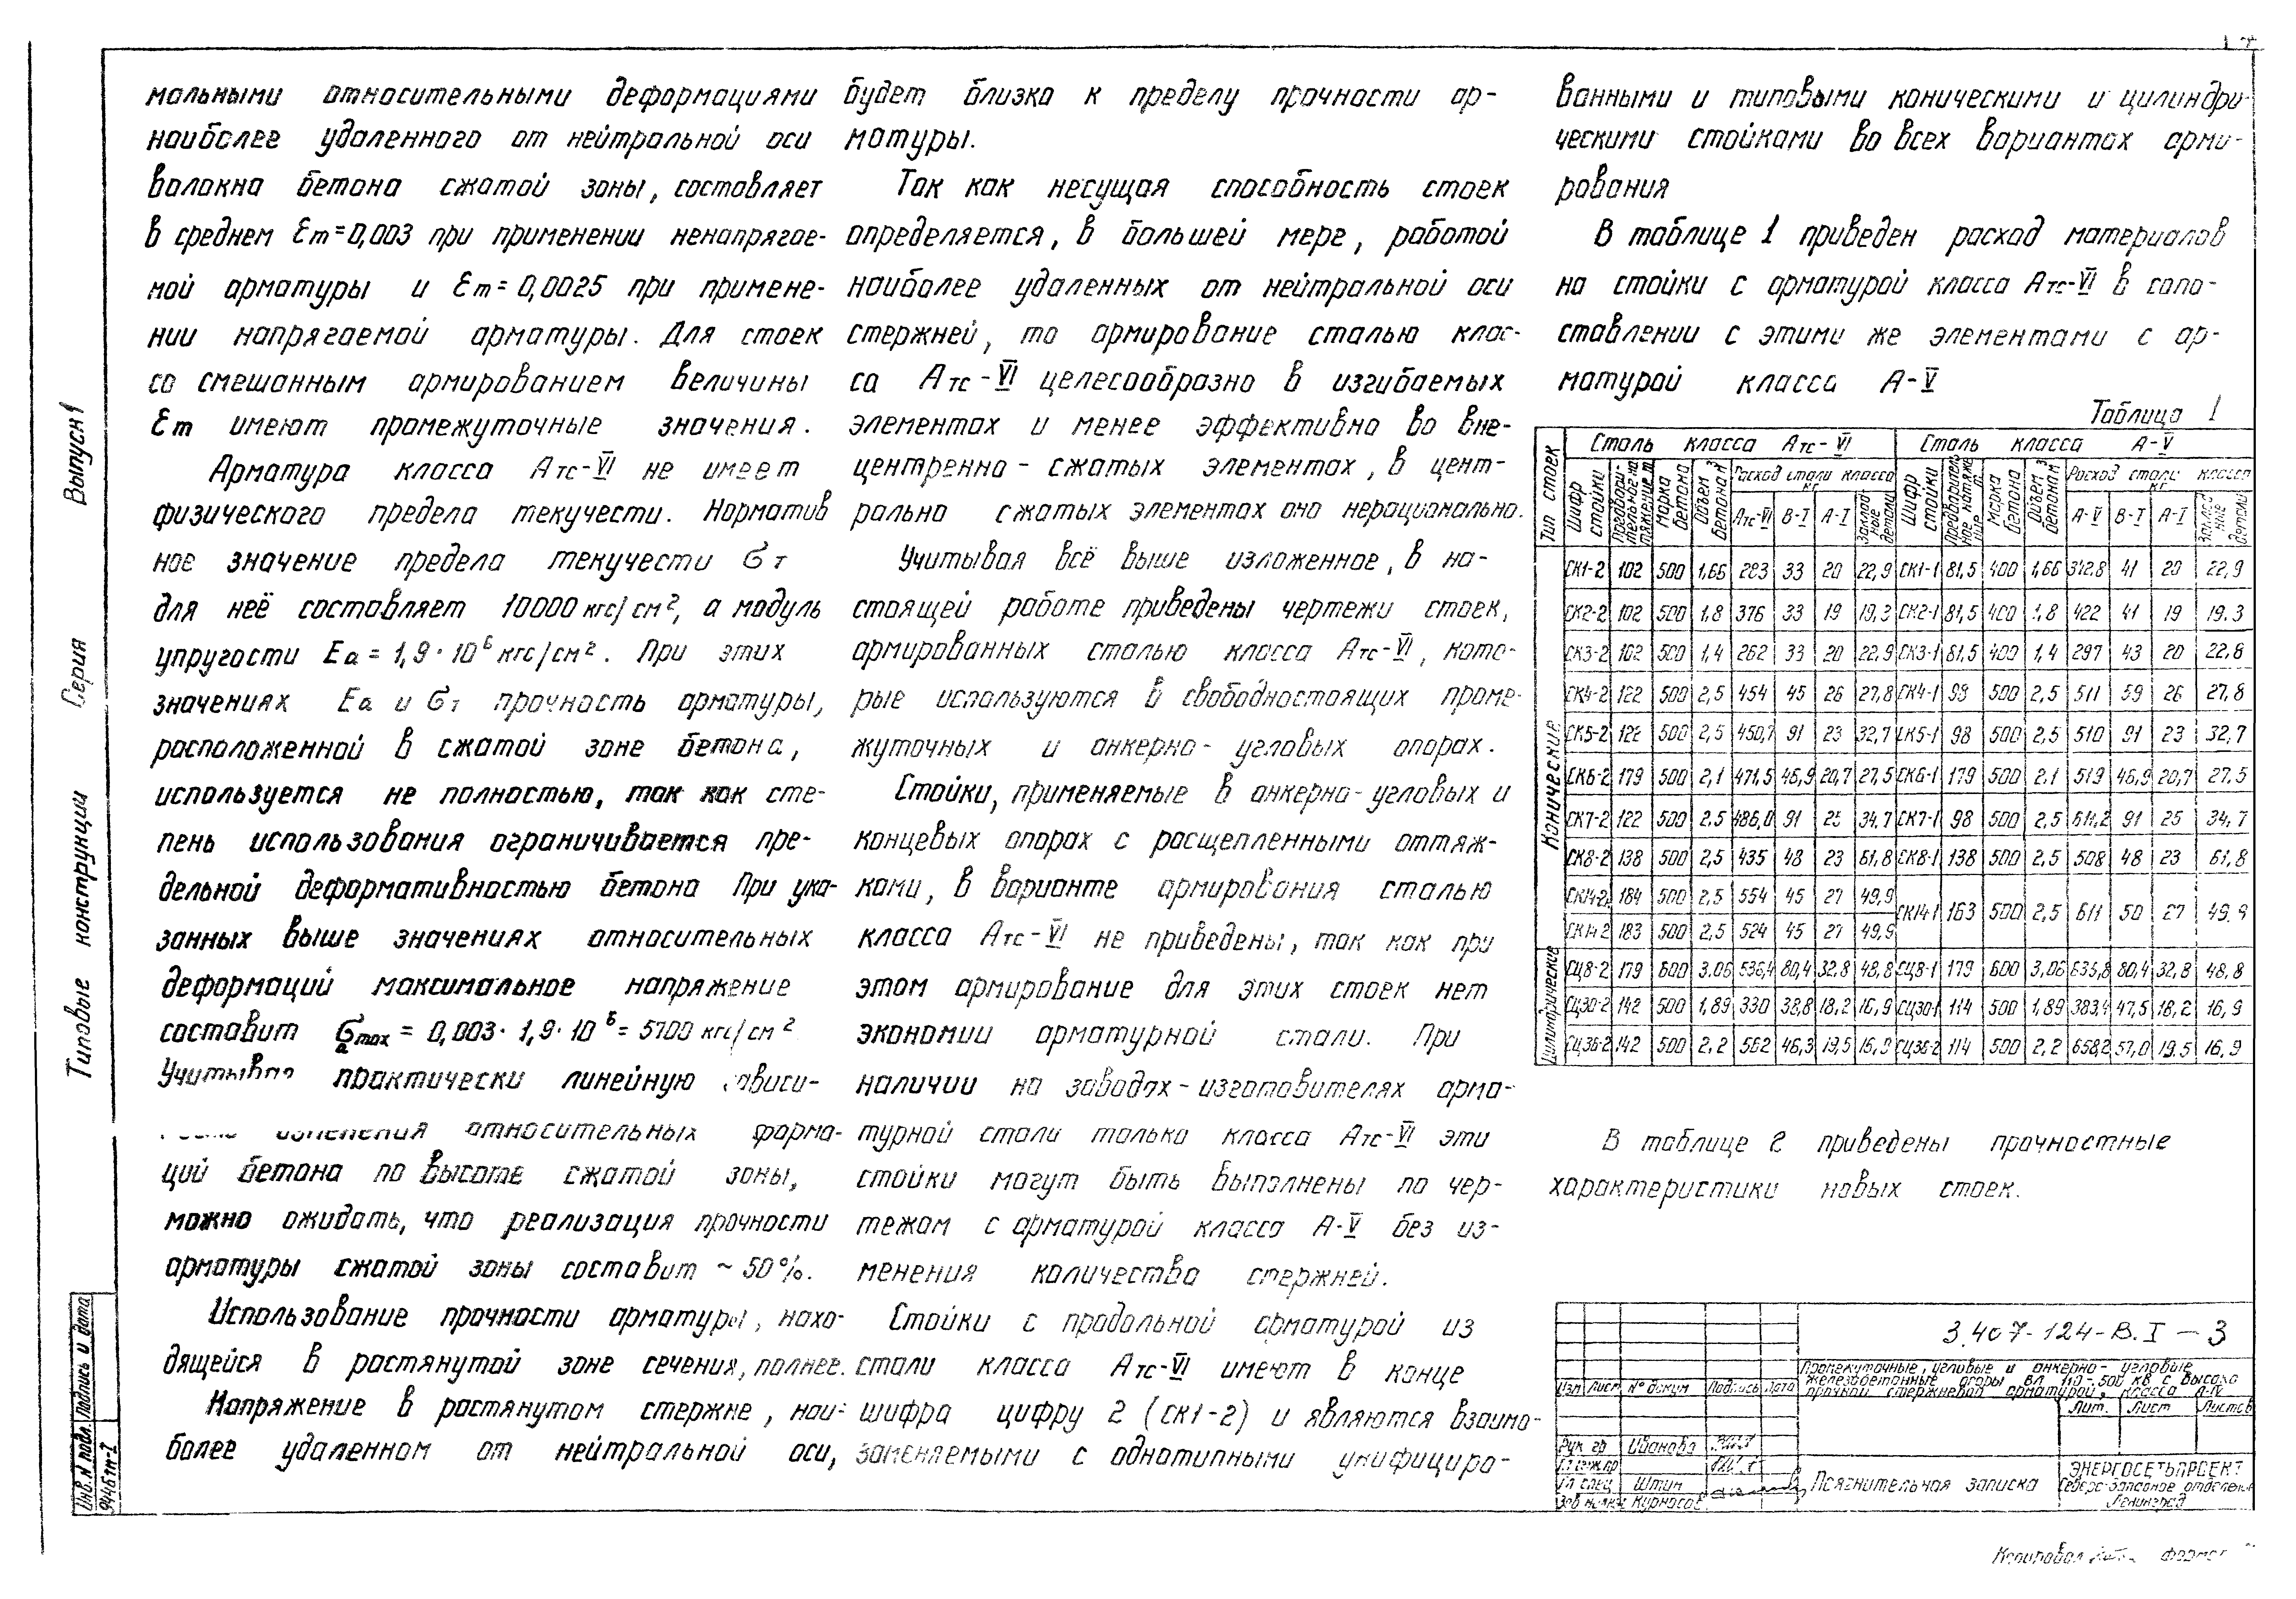 мальными относительными деформациями
наиболее удаленного от нейтральной оси
волокна бетона сжатой зоны, составляет
в среднем Ɛm=0,003 при применении ненапрягае-
мой арматуры и Ɛm=0,0025 при примене-
нии напрягаемой арматуры. Для стоек
со смешанным армированием величины
Ɛm имеют промежуточные значения.
Арматура класса Атс-VI не имеет
физического предела текучести. Норматив
ное значение предела текучести Ϭт
для неё составляет 10000 кгс/см², а модуль
упругости Еа = 1,9·10⁶ кгс/см². При этих
значениях Еа и Ϭт прочность арматуры,
расположенной в сжатой зоне бетона,
используется не полностью, так как сте-
пень использования ограничивается пре-
дельной деформативностью бетона При ука-
занных выше значениях относительных
деформаций максимальное напряжение
составит Ϭa max = 0,003·1,9·10⁶ = 5700 кгс/см²
Учитывая практически линейную зависи-
изменения относительных форма-
ций бетона по высоте сжатой зоны,
можно ожидать, что реализация прочности
арматуры сжатой зоны составит ~ 50%.
Использование прочности арматуры, нахо-
дящейся в растянутой зоне сечения, полнее.
Напряжение в растянутом стержне, наи-
более удаленном от нейтральной оси,
будет близко к пределу прочности ар-
матуры.
Так как несущая способность стоек
определяется, в большей мере, работой
наиболее удаленных от нейтральной оси
стержней, то армирование сталью клас-
са Атс-VI целесообразно в изгибаемых
элементах и менее эффективно во вне-
центренно-сжатых элементах, в цент-
рально сжатых элементах оно нерационально.
Учитывая всё выше изложенное, в на-
стоящей работе приведены чертежи стоек,
армированных сталью класса Атс-VI, кото-
рые используются в свободностоящих проме-
жуточных и анкерно-угловых опорах.
Стойки, применяемые в анкерно-угловых и
концевых опорах с расщепленными оттяж-
ками, в варианте армирования сталью
класса Атс-VI не приведены, так как при
этом армирование для этих стоек нет
экономии арматурной стали. При
наличии на заводах-изготовителях арма-
турной стали только класса Атс-VI эти
стойки могут быть выполнены по чер-
тежам с арматурой класса А-V без из-
менения количества стержней.
Стойки с продольной арматурой из
стали класса Атс-VI имеют в конце
шифра цифру 2 (СК1-2) и являются взаимо-
заменяемыми с однотипными унифициро-
ванными и типовыми коническими и цилиндри-
ческими стойками во всех вариантах арми-
рования
В таблице 1 приведен расход материалов
на стойки с арматурой класса Атс-VI в сопо-
ставлении с этими же элементами с ар-
матурой класса А-V
Таблица 1
Тип стоек Сталь класса Атс-VI Сталь класса А-V
Шифр стойки Предвари-тельное на-тяжение т Марка бетона Объем бетона м³ Расход стали класса кг Шифр стойки Предваритель ное натяже ние т Марка бетона Объем бетона м³ Расход стали класса кг
Атс-VI В-I А-I Заклад-ные детали А-V В-I А-I Заклад ные детали
Конические
СК1-2 102 500 1,66 283 33 20 22,9 СК1-1 81,5 400 1,66 312,8 41 20 22,9
СК2-2 102 500 1,8 376 33 19 19,3 СК2-1 81,5 400 1,8 422 41 19 19.3
СК3-2 102 500 1,4 262 33 20 22,9 СК3-1 81,5 400 1,4 297 43 20 22,8
СК4-2 122 500 2,5 454 45 26 27,8 СК4-1 98 500 2,5 511 59 26 27,8
СК5-2 122 500 2,5 450,7 91 23 32,7 СК5-1 98 500 2,5 510 91 23 32,7
СК6-2 179 500 2,1 471,5 46,9 20,7 27,5 СК6-1 179 500 2.1 519 46,9 20,7 27,5
СК7-2 122 500 2.5 486,0 91 25 34,7 СК7-1 98 500 2,5 611,2 91 25 34,7
СК8-2 138 500 2,5 435 48 23 61,8 СК8-1 138 500 2,5 508 48 23 61,8
184 500 2,5 554 45 27 49,9 СК14-1 163 500 2,5 611 50 27 49,9
183 500 2,5 524 45 27 49,9
Цилиндрические
СЦ8-2 179 600 3.06 536,4 80,4 32,8 48,8 СЦ8-1 179 600 3,06 635,8 80,4 32,8 48,8
СЦ30-2 142 500 1,89 330 38,8 18,2 16,9 СЦ30-1 114 500 1,89 383,4 47,5 18,2 16,9
СЦ36-2 142 500 2,2 562 46,3 19,5 16,9 СЦ36-2 114 500 2,2 658,2 57,0 19.5 16,9
В таблице 2 приведены прочностные
характеристики новых стоек.
3.407-124-В.I - 3
Промежуточные, угловые и анкерно-угловые
железобетонные опоры ВЛ 110-500 кВ с высоко
прочной стержневой арматурой, класса А-IV
Изм Лист N° докум Подпись Дата
Лит. Лист Листов
Рук гр Иванова
Гл инж пр
Гл спец Штин
Зав Курносов
Пояснительная записка
ЭНЕРГОСЕТЬПРОЕКТ
Северо-Западное отделение
Ленинград
Копировал Формат
Типовые конструкции Серия Выпуск 1
Инв. N подл. Подпись и дата
9446тм-1